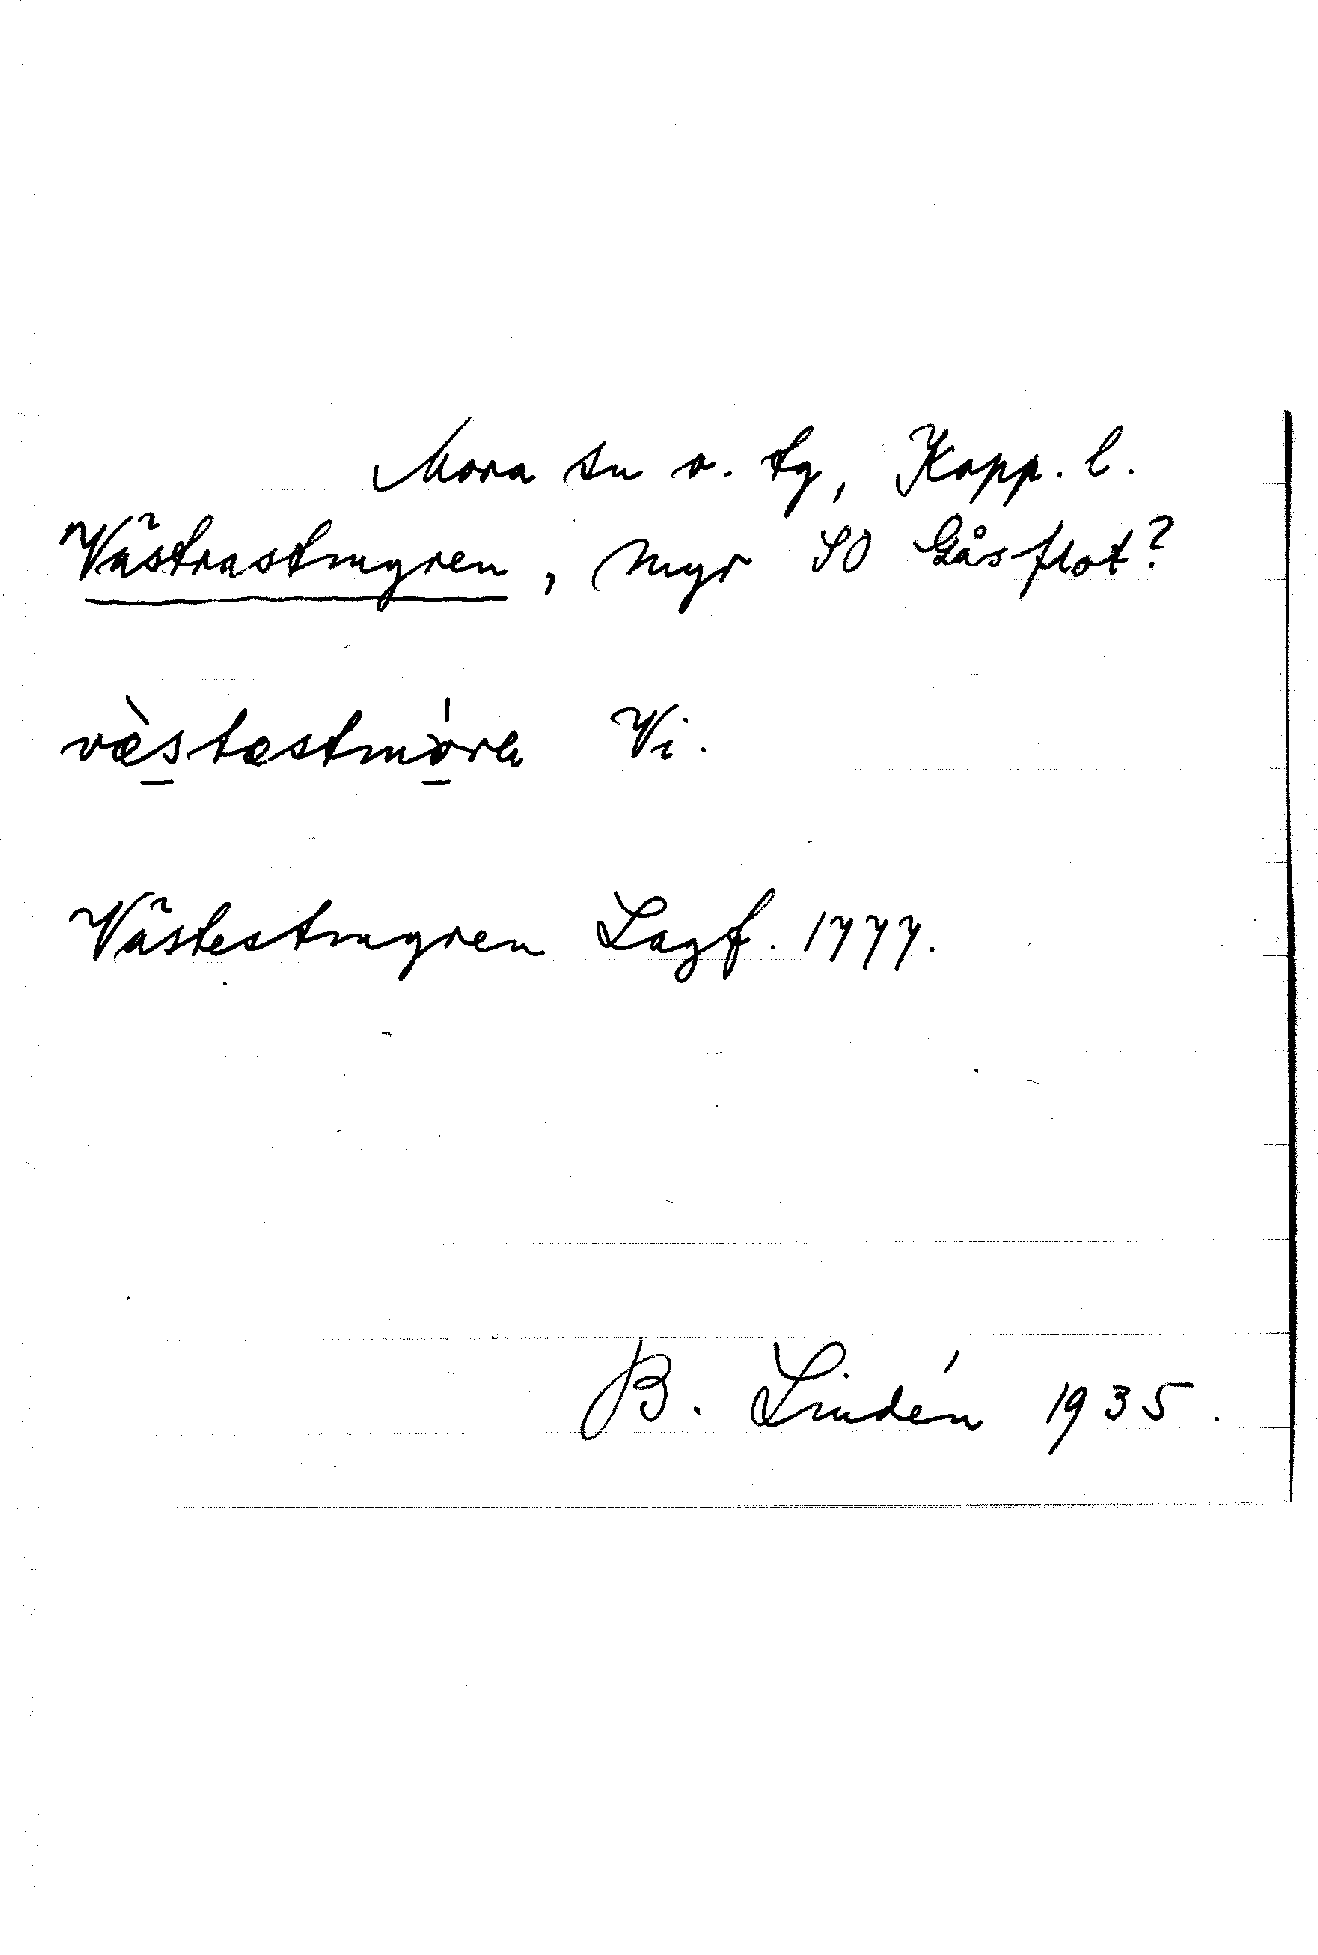 Mora sn o. tg, Kopp. l.
Västrastmyren, myr SO Gåsflot?
vȁstæstmörȩ Vi.
Västestmyren Lagf. 1777.
B. Lindén 1935.